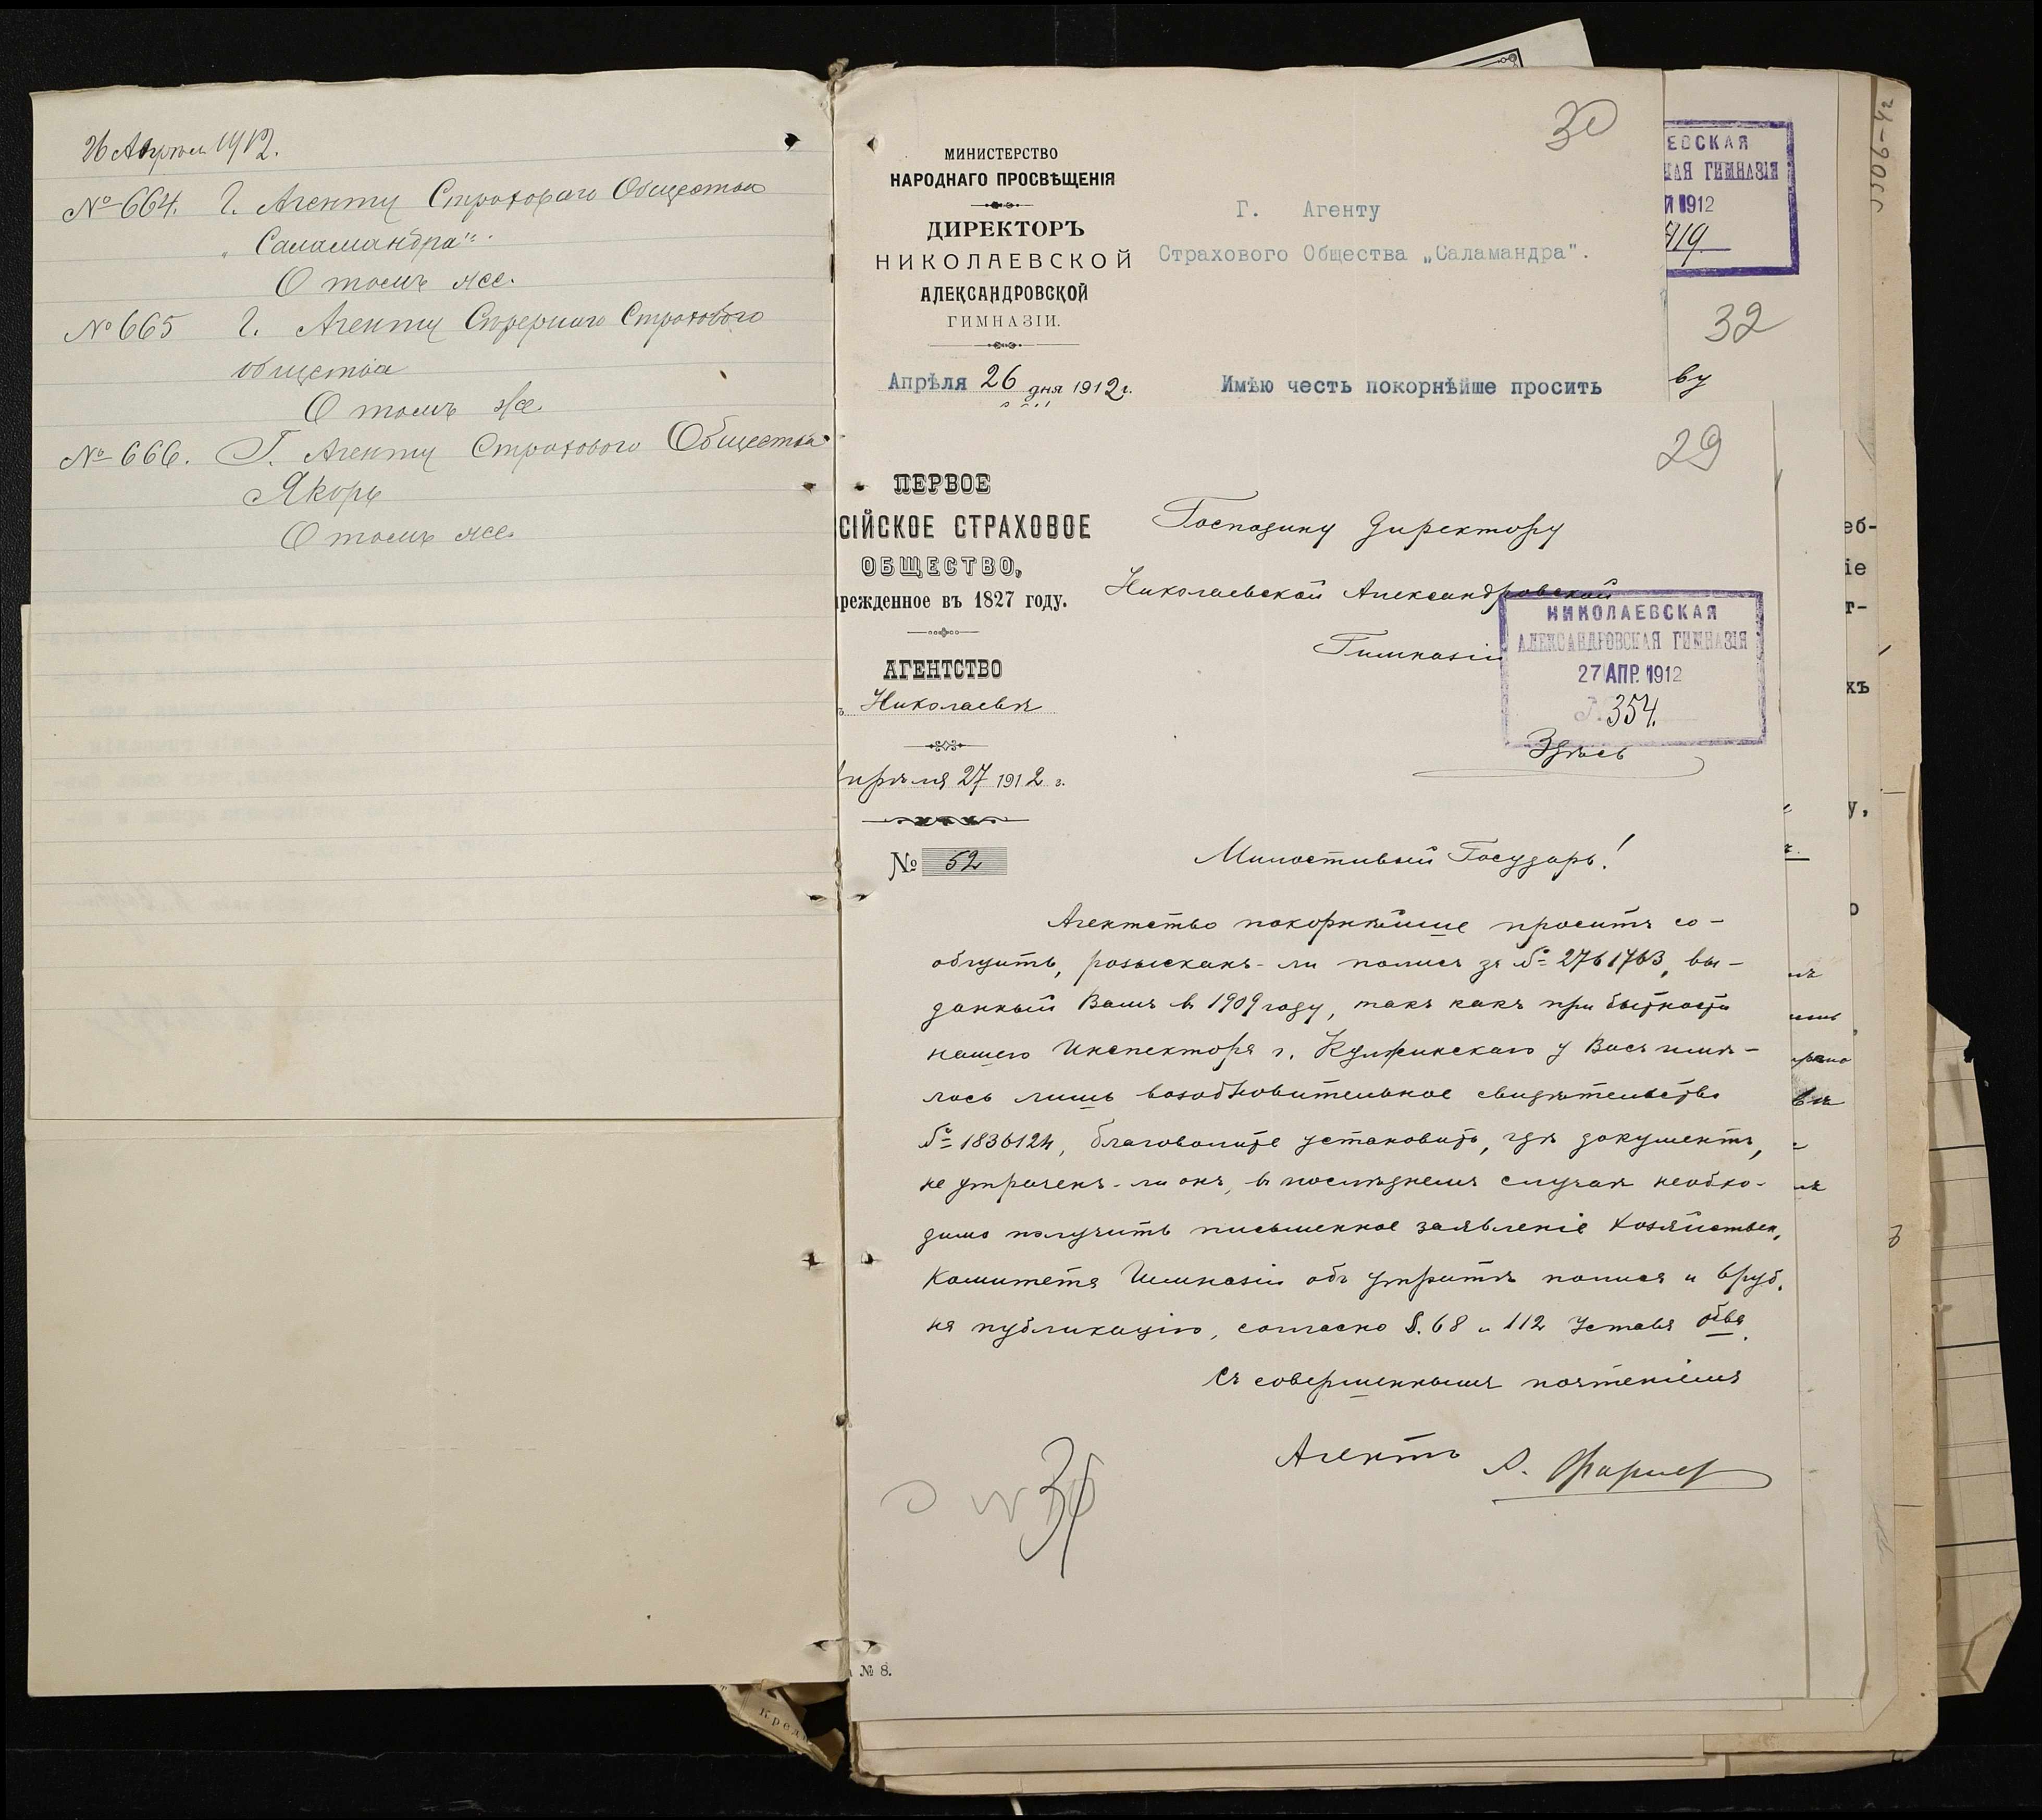 26 Апрѣля 1912.
№ 664. Г. Агенту Страхового Общества
„Саламандра".
О томъ же.
№ 665 Г. Агенту Сѣвернаго Страхового
общества
О томъ же
№ 666. Г. Агенту Страхового Общества
Якорь
О томъ же.
30
МИНИСТЕРСТВО
НАРОДНАГО ПРОСВѢЩЕНІЯ
ДИРЕКТОРЪ
НИКОЛАЕВСКОЙ
АЛЕКСАНДРОВСКОЙ
ГИМНАЗІИ.
Апрѣля 26 дня 1912 г.
Г. Агенту
Страхового Общества „Саламандра".
Имѣю честь покорнѣйше просить
29
ПЕРВОЕ
СІЙСКОЕ СТРАХОВОЕ
ОБЩЕСТВО,
режденное въ 1827 году.
АГЕНТСТВО
Николаевѣ
прѣля 27 1912 г.
№ 52
Господину Директору
Николаевской Александровской
Гимназіи
НИКОЛАЕВСКАЯ
АЛЕКСАНДРОВСКАЯ ГИМНАЗІЯ
27 АПР. 1912
354.
Здѣсь
Милостивый Государь!
Агентство покорнѣйше проситъ со-
общить, розысканъ-ли полисъ за № 2761763, вы-
данный Вамъ в 1909 году, такъ какъ при бытности
нашего Инспектора г. у Васъ имѣ-
лось лишь возобновительное свидѣтельство
№ 1836124, благоволите установить, гдѣ документъ,
не утраченъ-ли онъ, в послѣднемъ случаѣ необхо-
димо получить письменное заявленіе Хозяйствен.
Комитета Гимназіи объ утратѣ полиса и 6 руб.
на публикацію, согласно §. 68 и 112 Устава Об-ва.
Съ совершеннымъ почтеніемъ
Агентъ
№ 8.
ЕВСКАЯ
КАЯ ГИМНАЗІЯ
1912
419.
32
ву
еб-
іе
т-
хъ
у,
кред